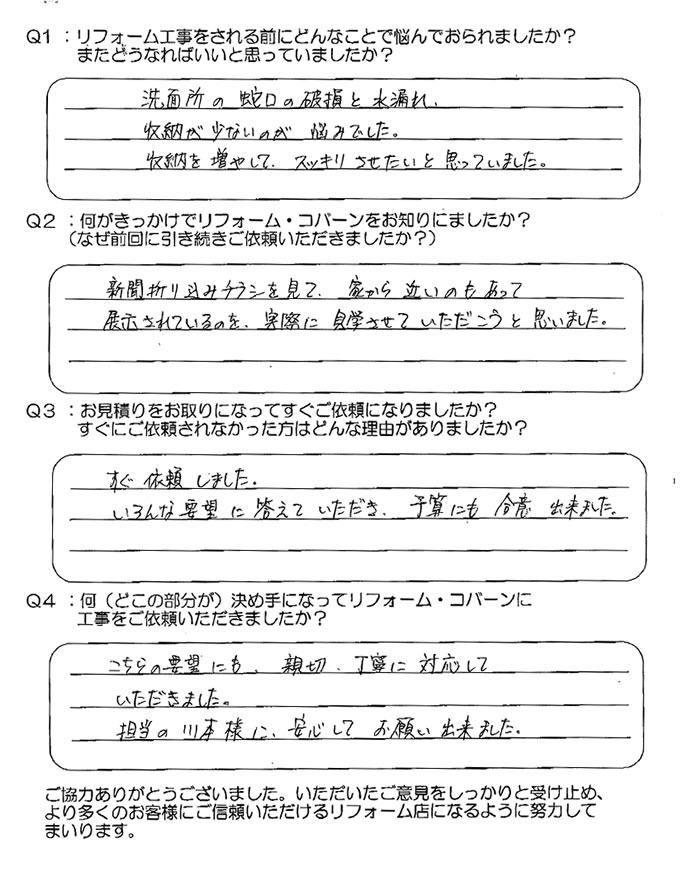 Q1：リフォーム工事をされる前にどんなことで悩んでおられましたか？
またどうなればいいと思っていましたか？
洗面所の蛇口の破損と水漏れ、
収納が少ないのが悩みでした。
収納を増やして、スッキリさせたいと思っていました。
Q2：何がきっかけでリフォーム・コバーンをお知りにましたか？
（なぜ前回に引き続きご依頼いただきましたか？）
新聞折り込みチラシを見て、家から近いのもあって
展示されているのを、実際に見学させていただこうと思いました。
Q3：お見積りをお取りになってすぐご依頼になりましたか？
すぐにご依頼されなかった方はどんな理由がありましたか？
すぐ依頼しました。
いろんな要望に答えていただき、予算にも合意出来ました。
Q4：何（どこの部分が）決め手になってリフォーム・コバーンに
工事をご依頼いただきましたか？
こちらの要望にも、親切、丁寧に対応して
いただきました。
担当の川本様に、安心してお願い出来ました。
ご協力ありがとうございました。いただいたご意見をしっかりと受け止め、
より多くのお客様にご信頼いただけるリフォーム店になるように努力して
まいります。